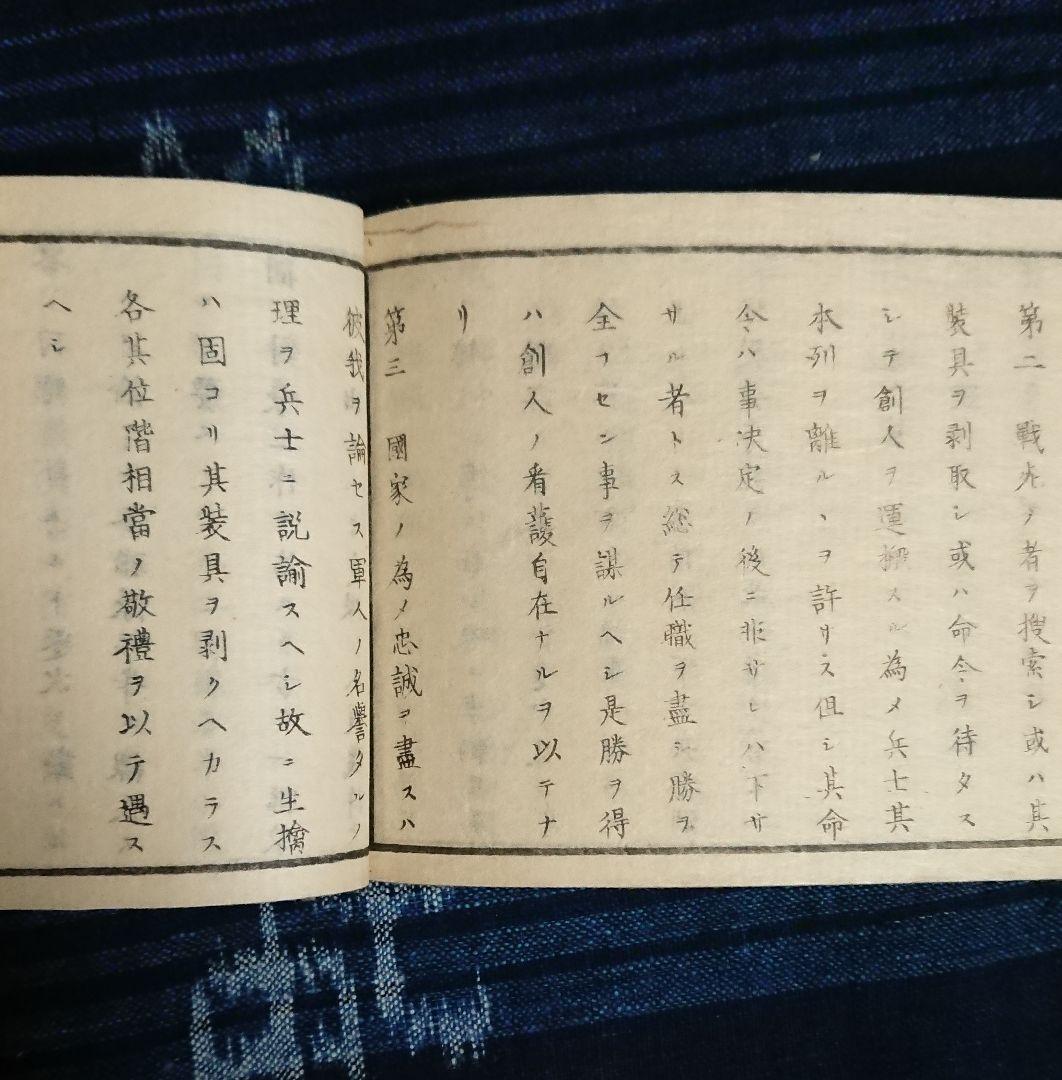 第二 戰死ノ者ヲ搜索シ或ハ其
裝具ヲ剥取シ或ハ命令ヲ待タス
シテ創人ヲ運搬スル為メ兵士其
本列ヲ離ルヽヲ許サス但シ其命
令ハ事決定ノ後ニ非サレハ下サ
サル者トス総テ任職ヲ盡シ勝ヲ
全フセン事ヲ謀ルヘシ是勝ヲ得
ハ創人ノ看護自在ナルヲ以テナ
リ
第三 國家ノ為メ忠誠ヲ盡スハ
彼我ヲ論セス軍人ノ名譽タルノ
理ヲ兵士ニ説諭スヘシ故ニ生擒
ハ固ヨリ其裝具ヲ剥クヘカラス
各其位階相當ノ敬禮ヲ以テ遇ス
ヘシ